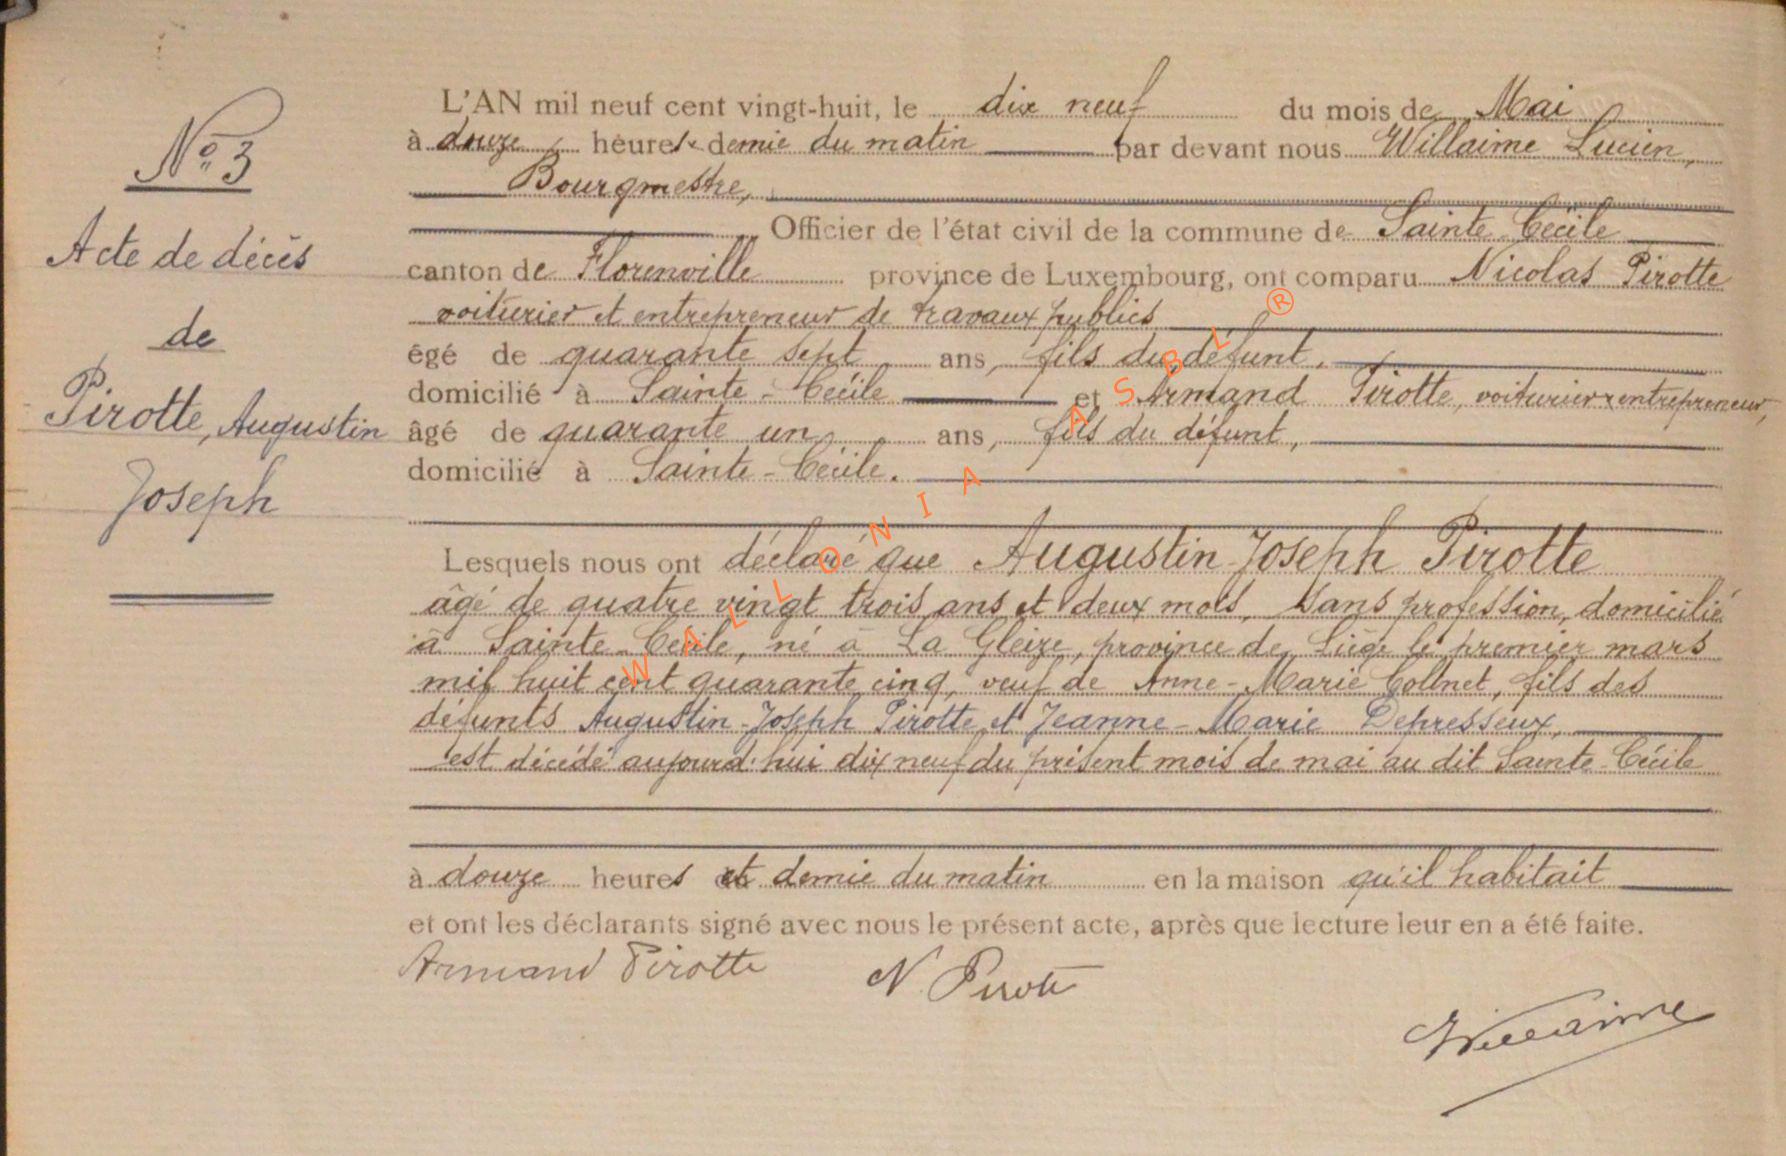 N° 3
Acte de décès
de
Pirotte, Augustin
Joseph
L'AN mil neuf cent vingt-huit, le dix neuf du mois de Mai
à douze heures & demie du matin par devant nous Willaime Lucien,
Bourgmestre,
Officier de l'état civil de la commune de Sainte Cécile
canton de Florenville province de Luxembourg, ont comparu Nicolas Pirotte
voiturier et entrepreneur de travaux publics
égé de quarante sept ans, fils du défunt,
domicilié à Sainte-Cécile et Armand Pirotte, voiturier & entrepreneur,
âgé de quarante un ans, fils du défunt,
domicilié à Sainte-Cécile.
Lesquels nous ont déclaré que Augustin-Joseph Pirotte
âgé de quatre vingt trois ans et deux mois, sans profession, domicilié
à Sainte-Cécile, né à La Gleize, province de Liège le premier mars
mil huit cent quarante cinq, veuf de Anne-Marie Collnet, fils des
défunts Augustin-Joseph Pirotte et Jeanne-Marie Depresseux,
est décédé aujourd'hui dix neuf du présent mois de mai au dit Sainte-Cécile
à douze heures et demie du matin en la maison qu'il habitait
et ont les déclarants signé avec nous le présent acte, après que lecture leur en a été faite.
Armand Pirotte N. Pirotte
Willaime
WALLONIA ASBL ®